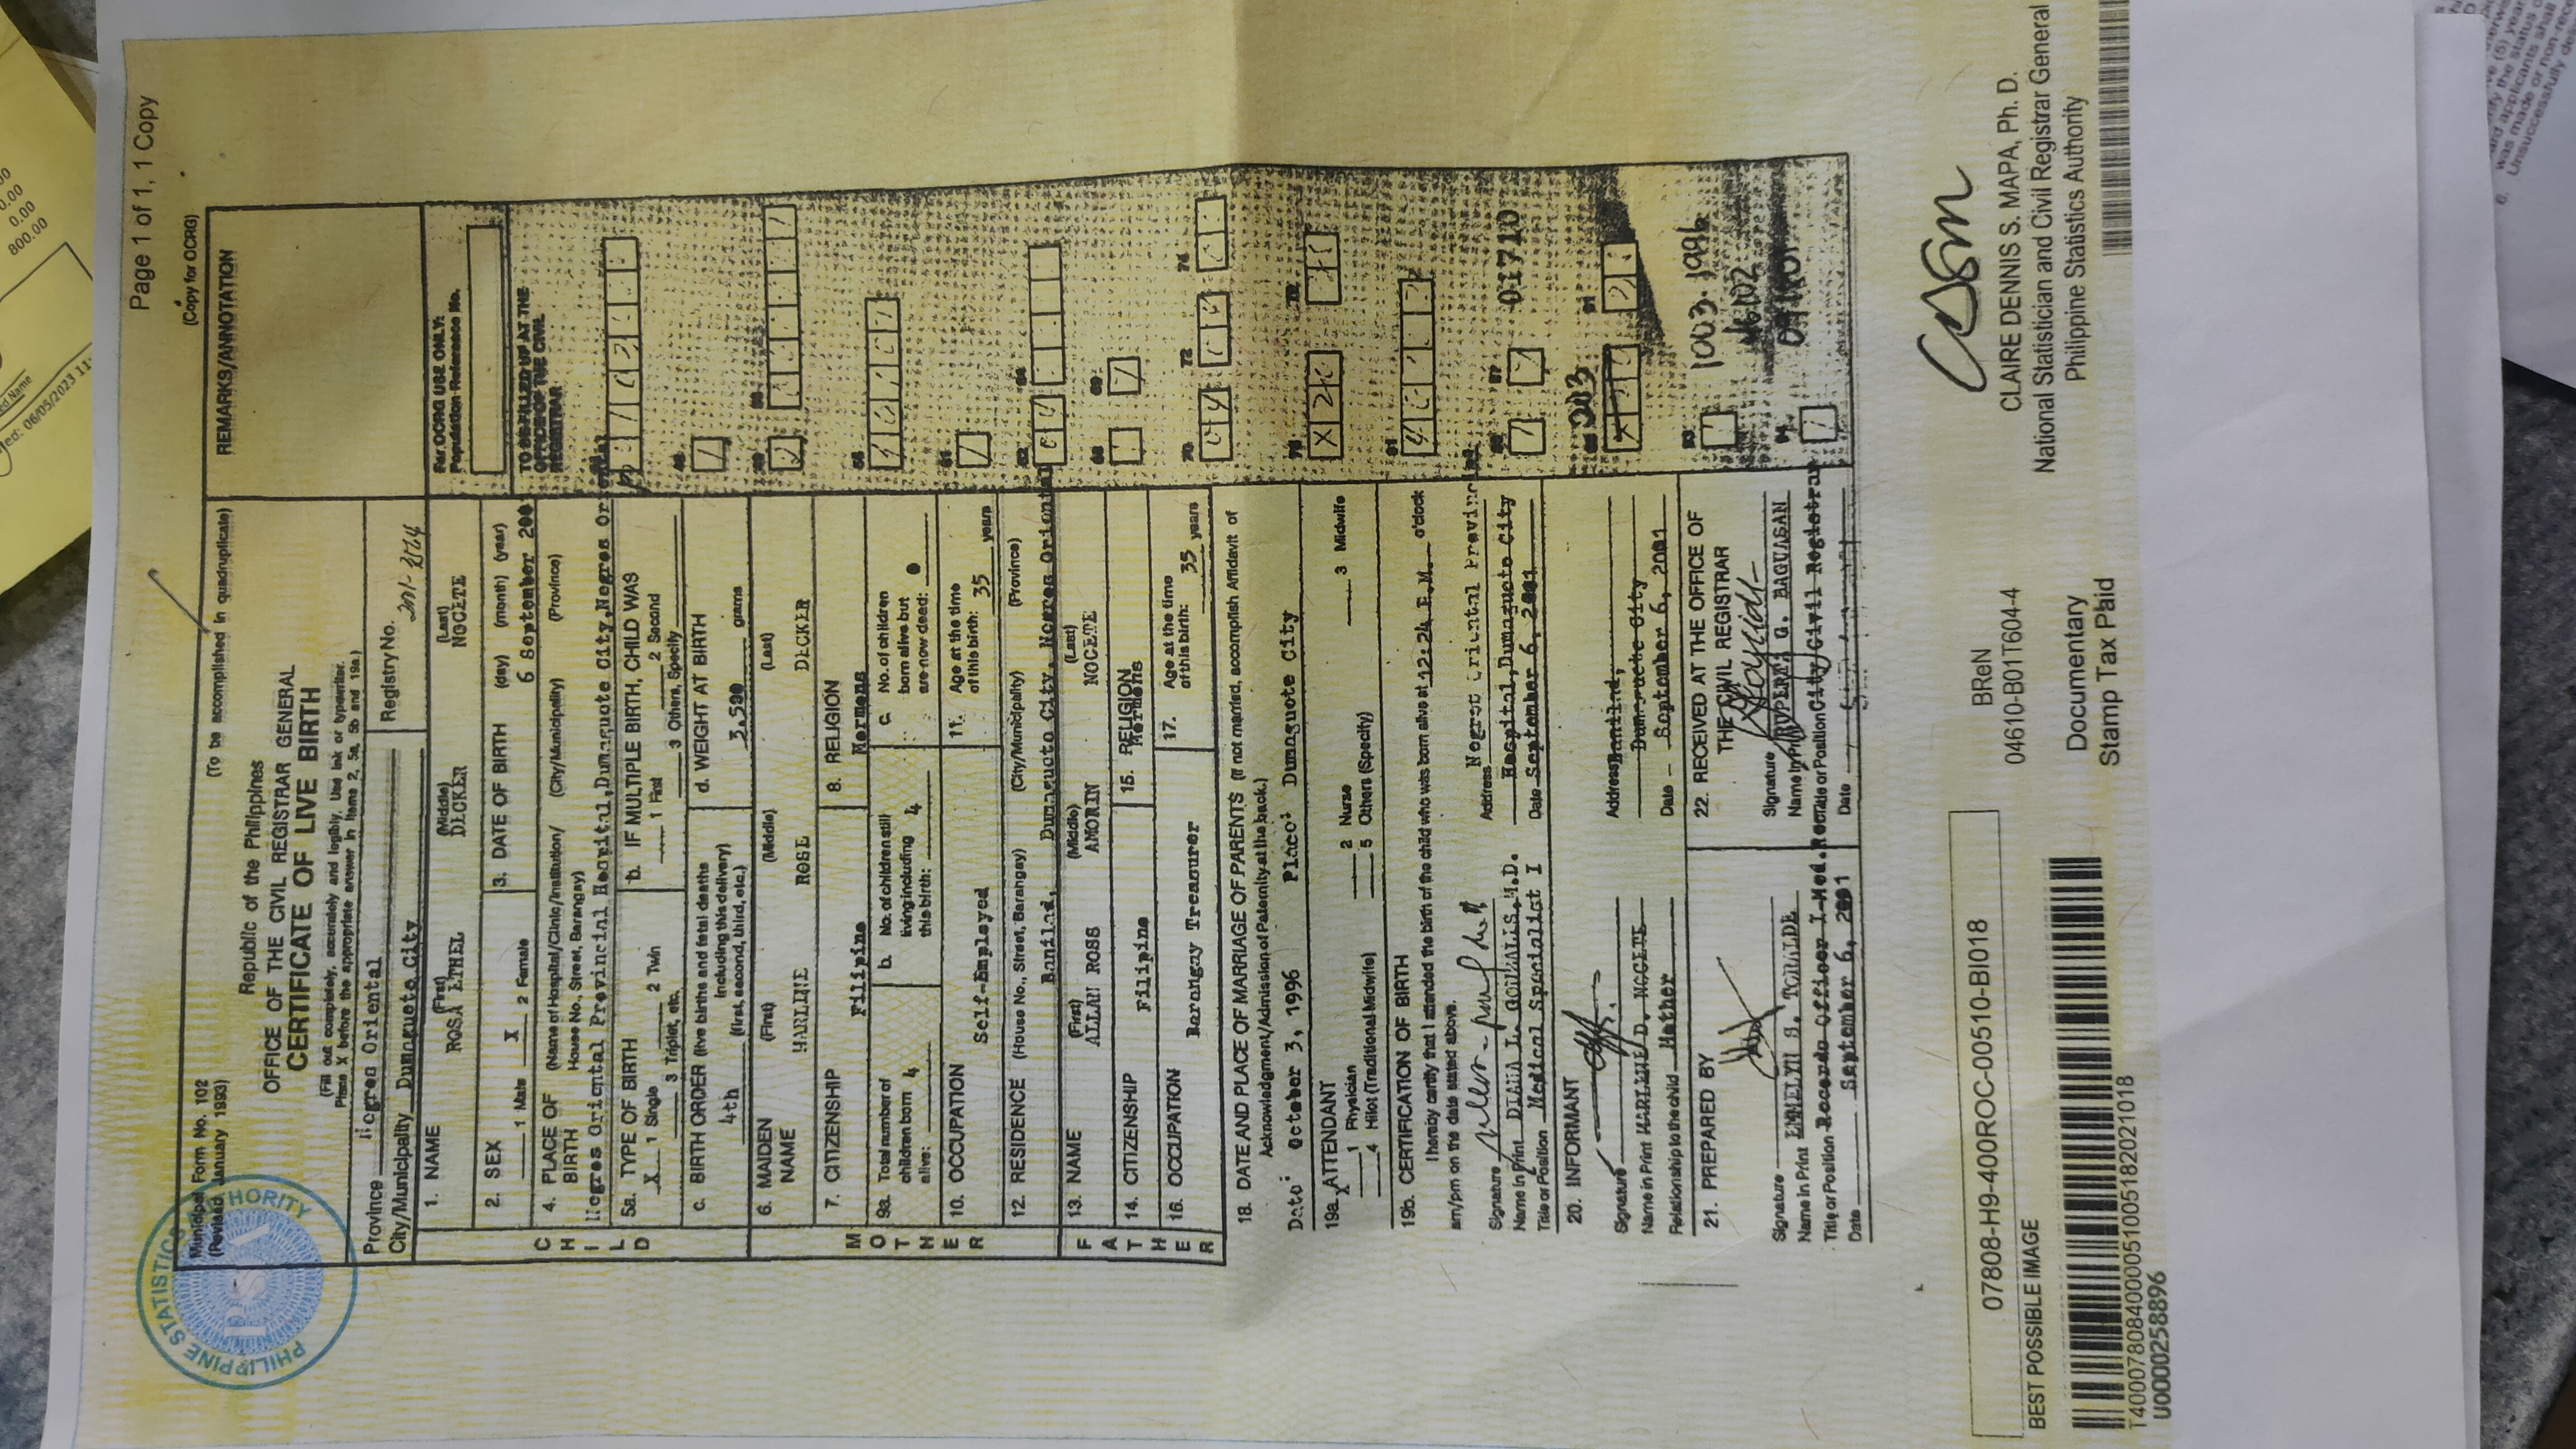 Page 1 of 1, 1 Copy
(Copy for OCRG)
Municipal Form No. 102
(Revised January 1993)
(To be accomplished in quadruplicate)
Republic of the Philippines
OFFICE OF THE CIVIL REGISTRAR GENERAL
CERTIFICATE OF LIVE BIRTH
(Fill out completely, accurately and legibly. Use ink or typewriter.
Place X before the appropriate answer in items 2, 5a, 5b and 19a.)
REMARKS/ANNOTATION
Province Negros Oriental
City/Municipality Dumaguete City
Registry No.
For OCRG USE ONLY:
Population Reference No.
TO BE FILLED UP AT THE
OFFICE OF THE CIVIL
REGISTRAR
1. NAME (First) (Middle) (Last)
ROSA ETHEL DECKER NOCETE
2. SEX
1 Male X 2 Female
3. DATE OF BIRTH (day) (month) (year)
6 September 200
CHILD
4. PLACE OF BIRTH (Name of Hospital/Clinic/Institution/ House No., Street, Barangay) (City/Municipality) (Province)
Negros Oriental Provincial Hospital, Dumaguete City, Negros Oriental
5a. TYPE OF BIRTH
X 1 Single 2 Twin
3 Triplet, etc.
b. IF MULTIPLE BIRTH, CHILD WAS
1 First 2 Second
3 Others, Specify
c. BIRTH ORDER (live births and fetal deaths
including this delivery)
4th (first, second, third, etc.)
d. WEIGHT AT BIRTH
3,500 grams
MOTHER
6. MAIDEN NAME (First) (Middle) (Last)
MARLINE ROSE DECKER
7. CITIZENSHIP
Filipino
8. RELIGION
Mormons
9a. Total number of
children born
alive: 4
b. No. of children still
living including
this birth: 4
c. No. of children
born alive but
are now deceased: 0
10. OCCUPATION
Self-Employed
11. Age at the time
of this birth: 35 years
12. RESIDENCE (House No., Street, Barangay) (City/Municipality) (Province)
Banilad, Dumaguete City, Negros Oriental
FATHER
13. NAME (First) (Middle) (Last)
ALLAN ROSS AMORIN NOCETE
14. CITIZENSHIP
Filipino
15. RELIGION
Mormons
16. OCCUPATION
Barangay Treasurer
17. Age at the time
of this birth: 35 years
18. DATE AND PLACE OF MARRIAGE OF PARENTS (If not married, accomplish Affidavit of
Acknowledgment/Admission of Paternity at the back.)
Date: October 3, 1996 Place: Dumaguete City
19a. ATTENDANT
X 1 Physician 2 Nurse 3 Midwife
4 Hilot (Traditional Midwife) 5 Others (Specify)
19b. CERTIFICATION OF BIRTH
I hereby certify that I attended the birth of the child who was born alive at 12:24 P.M. o'clock
am/pm on the date stated above.
Signature
Name in Print DIANA L. GONZALES, M.D.
Title or Position Medical Specialist I
Address Negros Oriental Provincial
Hospital, Dumaguete City
Date September 6, 2001
20. INFORMANT
Signature
Name in Print MARLINE D. NOCETE
Relationship to the child Mother
Address Banilad,
Dumaguete City
Date September 6, 2001
21. PREPARED BY
Signature
Name in Print EMMELYN S. TORILDE
Title or Position Records Officer I-Med. Records
Date September 6, 2001
22. RECEIVED AT THE OFFICE OF
THE CIVIL REGISTRAR
Signature
Name in Print G. BAGUASAN
Title or Position City Civil Registrar
Date
01710
1003-1996
07808-H9-400ROC-00510-BI018
BEST POSSIBLE IMAGE
T400078084000051005182021018
U00000258896
BReN
04610-B01T604-4
Documentary
Stamp Tax Paid
CLAIRE DENNIS S. MAPA, Ph. D.
National Statistician and Civil Registrar General
Philippine Statistics Authority
PHILIPPINE STATISTICS AUTHORITY
PSA
0.00
0.00
800.00
06/05/2023 11: